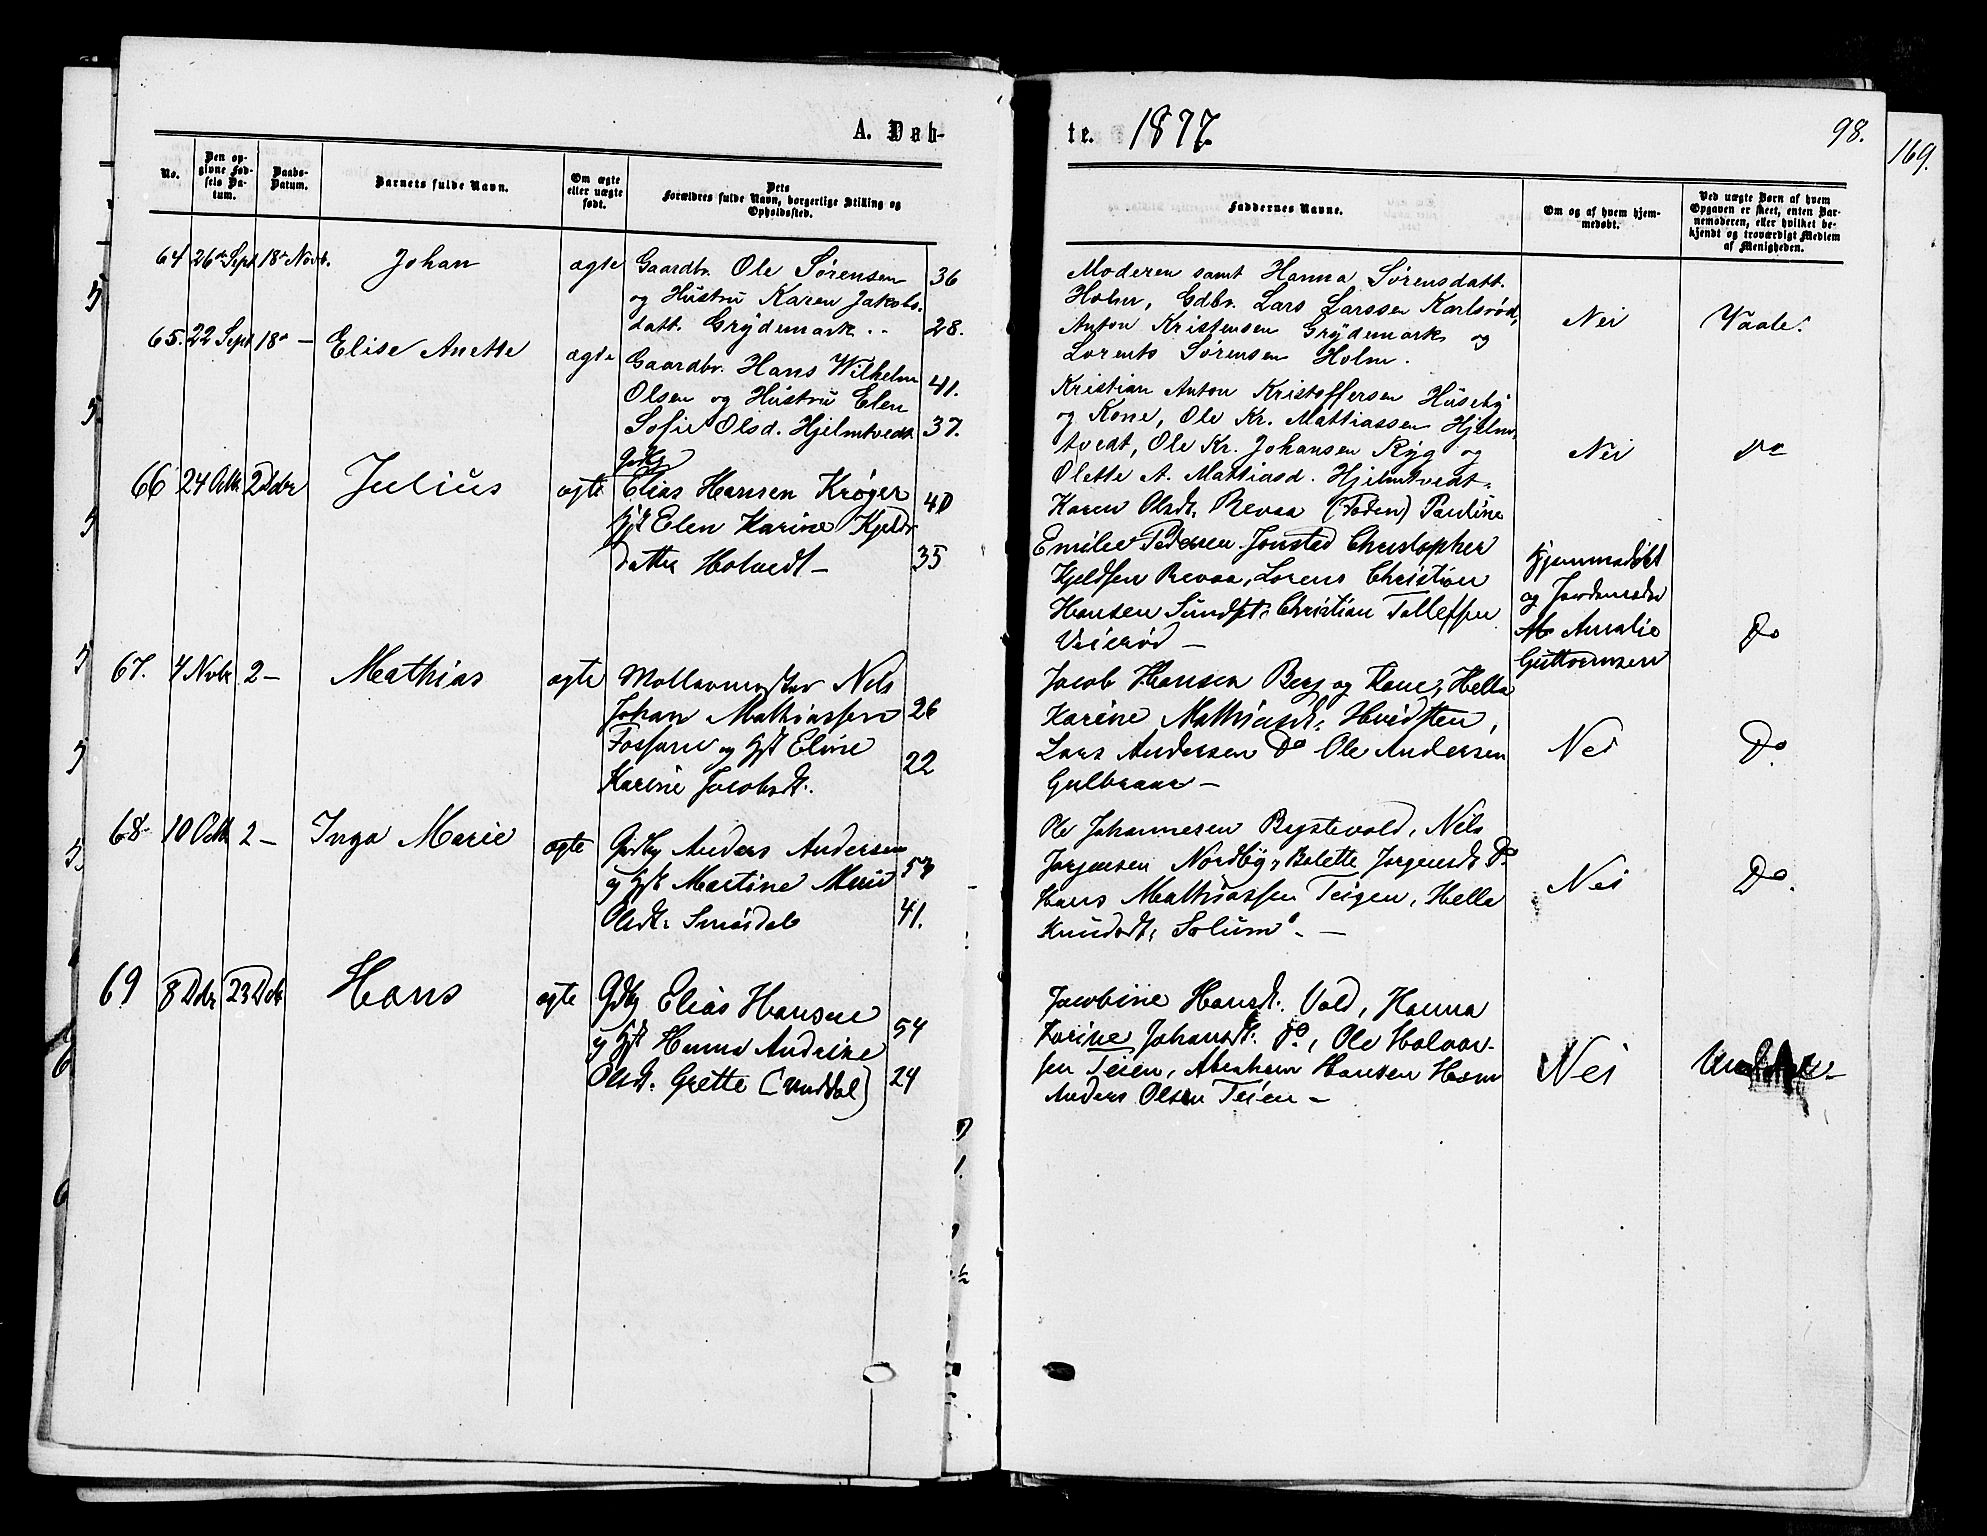 A. Døb-
te. 1877.
98.
169.
No.
Den op-
givne Fød-
sels Da-
tum.
Daabs-
Datum.
Barnets fulde Navn.
Om ægte
eller uægte
født.
Dets
Forældres fulde Navn, borgerlige Stilling og
Opholdssted.
Faddernes Navne.
Om og af hvem hjem-
medøbt.
Ved uægte Børn af hvem
Opgaven er skeet, enten Bar-
nemoderen, eller hvilket be-
kjendt og troværdigt Medlem
af Menigheden.
64 26de Sept 18de Novb. Johan ægte Gaardbr. Ole Sørensen 36
og Hustru Karen Jakobs-
datt. Grydemark.. 28.
Moderen samt Hanna Sørensdatt.
Holm, Gdbr. Lars Larssen Karlsrød,
Anton Kristensen Grydemark og
Lorents Sørensen Holm.
Nei Vaale.
65. 22 Sept 18de — Elise Anette ægte Gaardbr. Hans Wilhelm 41.
Olsen og Hustru Elen
Sofie Olsd. Hjelmtvedt 37.
Kristian Anton Kristoffersen Huseby
og Kone, Ole Kr. Mattiassen Hjelm-
tvedt, Ole Kr. Johansen Ryg og
Olette A. Mattiasd. Hjelmtvedt.
Nei Do
66 24 Octbr 2 Dcbr Julius ægte
Elias Hansen Krøger 40
Hst Elen Karine Kjelds-
datter Holvedt — 35
Karen Olsdt. Revaa (Foden) Pauline
Emilie Pedersen Jonstad Christopher
Kjeldsen Revaa, Lorens Christian
Hansen Sundset, Christian Tollefsen
Veierød —
Hjemmedøbt
og Jordemoder
Amalie
Guttormsen
Do
67. 4 Novbr 2 — Mathias ægte Møllermester Nils
Johan Mathiassen 26
Fossane og Hst Eline 22
Karine Jacobsdt.
Jacob Hansen Berg og Kone, Hella
Karine Mathiasdt. Hvidsten,
Lars Andersen Do Ole Andersen
Gulbraar —
Nei Do
68. 10 Octbr 2 — Inga Marie ægte Gdbr Anders Andersen 53
og Hst Martine Marie
Olsdt. Smørdal 41.
Ole Johannesen Bystevold, Nils
Jørgensen Nordby, Bolette Jørgensdt Do
Hans Mathiassen Teigen, Hella
Knudsdt. Solum. —
Nei Do.
69 8 Dcbr 23 Dcbr Hans ægte Gdbr Elias Hansen 54
og Hst Hanna Andrine
Olsdt. Grette (Unddal) 24
Jacobine Hansdt. Vold, Hanna
Karine Johansdt. Do, Ole Halvor-
sen Teien, Abraham Hansen Hem
Anders Olsen Teien —
Nei